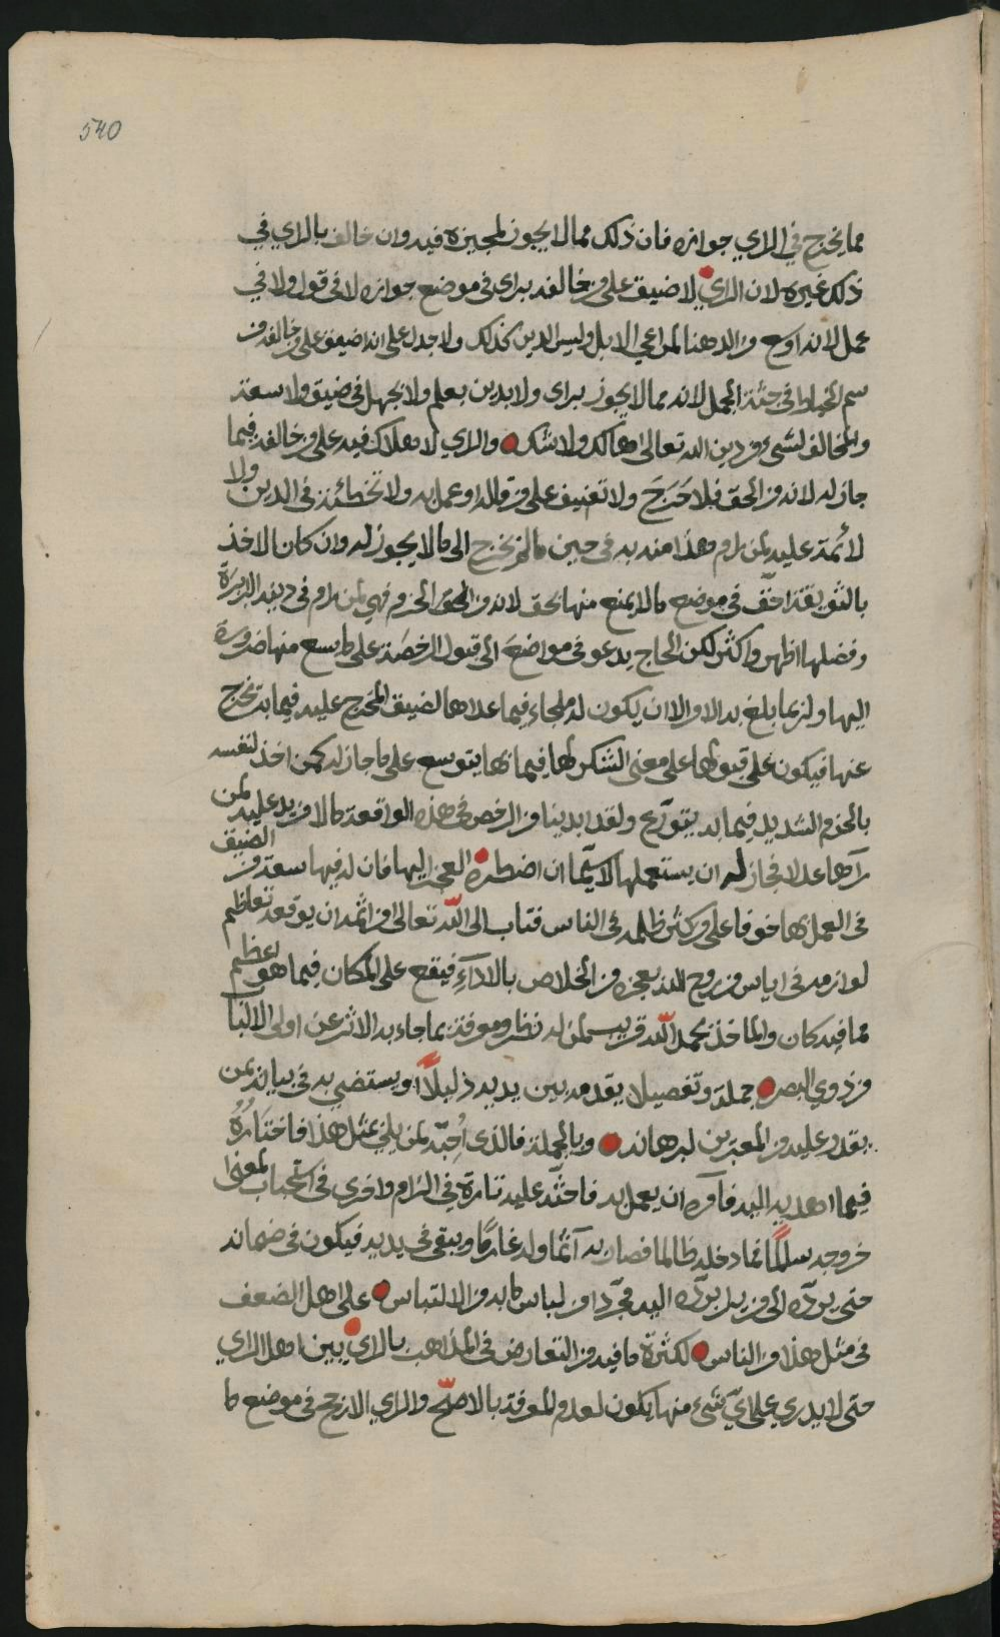 540
مما يخرج في الراي جوازه فان ذلك مما لا يجوز لمجيزه فيه وان خالف بالراي في
ذلك غيره لان الراي لا ضيق على من خالفه براى في موضع جوازه لا في قول ولا في
عمل لانه اوسع من الدهنا لمراعي الابل وليس الدين كذلك ولا جدل على انه اضيق على من خالفه من
سم الخياط في جثة الجمل لانه مما لا يجوز براى ولا بدين بعلم ولا بجهل في ضيق ولا سعة
والمخالف لشيء من دين الله تعالى هالك ولا شك والراي لا هلاك فيه على من خالفه فيما
جاز له لانه من الحق فلا حَرَجَ ولا تعنيف على من قاله او عمل به ولا تخطئة في الدين ولا
لائمة عليه لمن رام هذا منه به في حين ما لم يخرج الى ما لا يجوز له وان كان الاخذ
بالثويقة احق في موضع ما لا يمنع منها بحق لانه من الحق الحزم فهي لمن رام في دينه
وفضلها اظهر واكثر لكن الحاج يدعو في مواضع الى قبول الرخصة على ما يسع منها ضرورة
اليها ولربما بلغ به الامر الا ان يكون له ملجاء فيما عداها لضيق المخرج عليه فيما به تخرج
عنها فيكون على قبولها على معنى الشكر لها فيما بها يتوسع على ما جاز له كمن اخذ لنفسه
بالحزم الشديد فيما به يتورّع ولقد ابدينا من الرخص في هذه الواقعة ما لا مزيد عليه لمن
رآها عدلا فجاز له ان يستعملها لا سيّما ان اضطره العجز اليها فان له فيها سعة من الضيق
في العمل بها خوفا على من كثر ظلمه في الناس فتاب الى الله تعالى من اثمه ان يوقعه تعاظم
لوازمه في اياس من روح الله بعجزه من الخلاص بالاداءِ فيقع على المكان فيما هو اعظم
مما فيه كان والماخذ بحمد الله قريب لمن له نظر ومعرفة بما جاء به الاثر عن اولى الالبا
من ذوي البصر جملة وتفصيلا يقدمه بين يديه ذليلاً او يستضيء به في بيانه لمن
يقدر عليه من المعبّرين لبرهانه وبالجملة فالذى اُحِبّه لمن بلي بمثل هذا فاختَارُهُ
فيما اهديه اليه فآمره ان يعمل به فاحثّه عليه تارة في الزام واخرى في استحباب لمعنى
خروجه سالماً مما دخله ظالما فصار به آثما وله غارمًا ويبقى في يديه فيكون في ضمانه
حتى يردّه الى من يراه يردّه اليه مجرّدا من لباس ما به من الالتباس على اهل الضعف
في مثل هذا من الناس لكثرة ما فيه من التعارض في المذاهب بالراي بين اهل الراي
حتى لا يدري على ايّ شيء منها يكون لعدم المعرفة بالاصحّ والراي الارجح في موضع ما